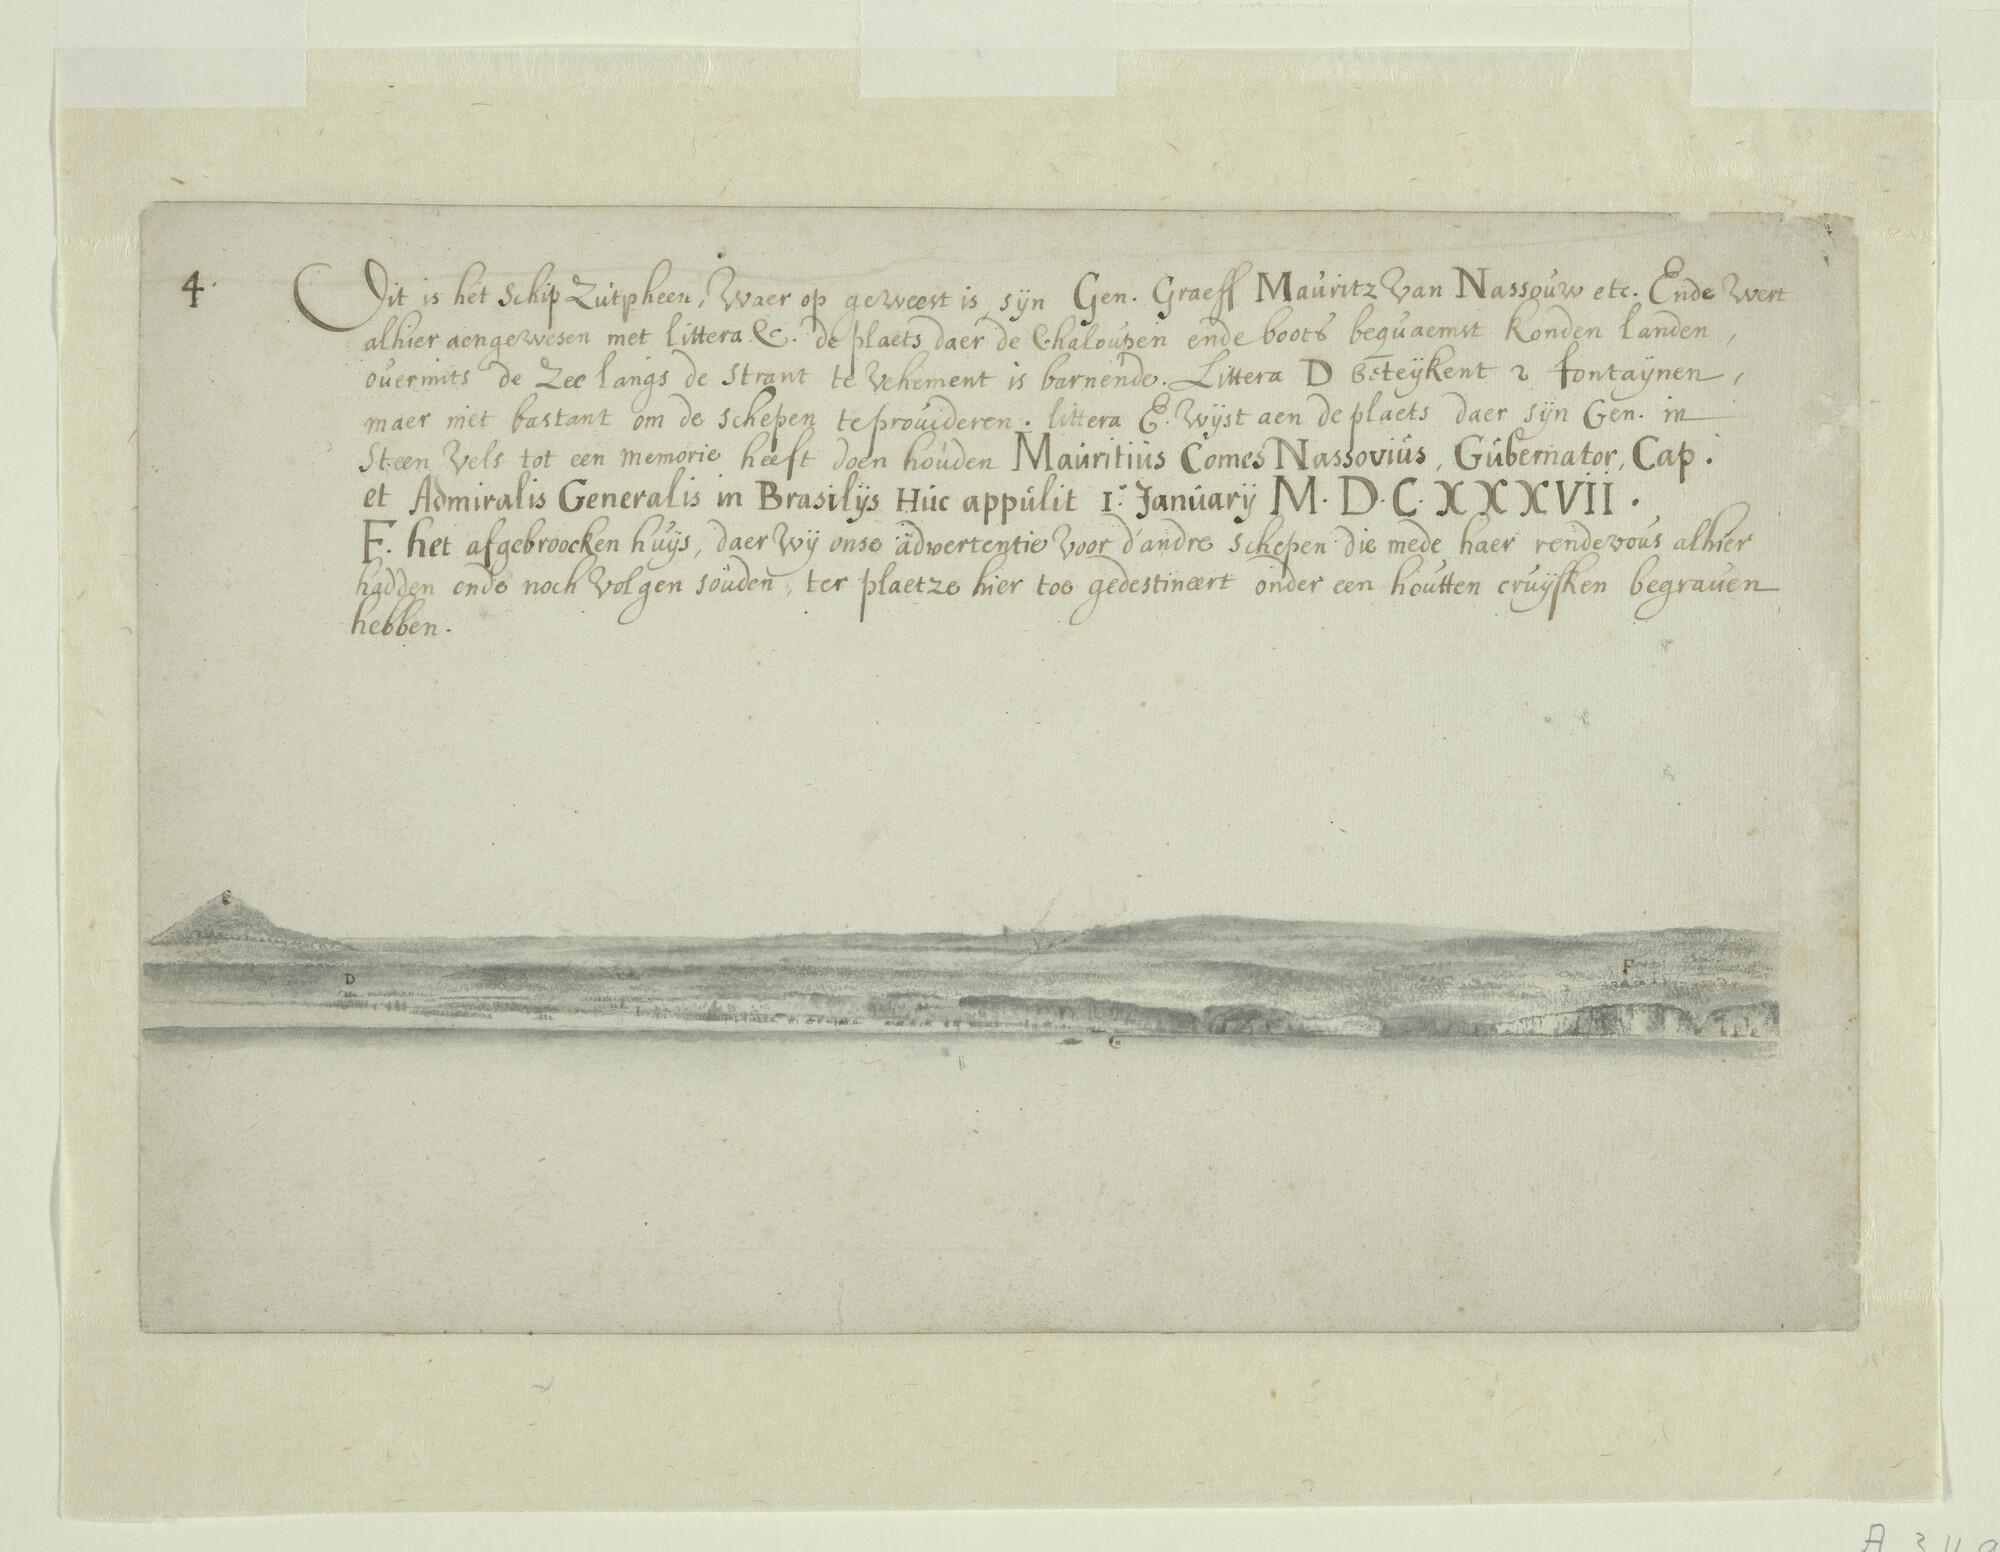 4.
Dit is het Schip Zutpheen, Waer op geweest is, sÿn Gen. Graeff Mauritz Van Nassouw etc. Ende wert
alhier aengewesen met littera C. de plaets daer de Chaloupen ende boots bequaemst konden landen,
overmits de Zee langs de strant te vehement is barnende. Littera D beteÿkent 2 fontaÿnen,
maer niet bastant om de schepen te provideren. littera E. Wÿst aen de plaets daer sÿn Gen. in
Steen Vels tot een memorie heeft doen houden Mauritius Comes Nassovius, Gubernator, Cap:
et Admiralis Generalis in Brasilÿs Huc appulit 1.' Januarÿ M.D.C.XXXVII.
F. het afgebroocken huÿs, daer Wÿ onse advertentie Voor d'andre schepen die mede haer rendevous alhier
hadden ende noch Volgen souden, ter plaetze hier toe gedestineert onder een houtten cruÿsken begraven
hebben.
E
D
F
C
A 3 4 9